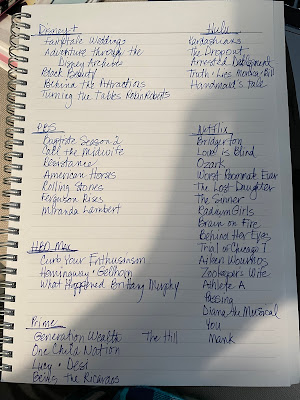 Disney+
Fairytale Weddings
Adventure through the
Disney Archives
Black Beauty
Behind the Attractions
Turning the Tables Robin Roberts
Hulu
Kardashians
The Dropout
Arrested Development
Truth + Lies Monday Bill
Handmaid's Tale
PBS
Call the Midwife
Resistance
American Horses
Rolling Stones
Ferguson Rises
Miranda Lambert
Netflix
Bridgerton
Love is Blind
Ozark
Worst Roommate Ever
The Lost Daughter
The Sinner
Radium Girls
Brain on Fire
Behind Her Eyes
Trial of Chicago 7
Aileen Wuornos
Zookeeper's Wife
Athlete A
Passing
Diana the Musical
You
Mank
HBO Max
Curb Your Enthusiasm
Hemingway + Gellhorn
What Happened Brittany Murphy
Prime
Generation Wealth
The Hill
One Child Nation
Lucy + Desi
Being the Ricardos